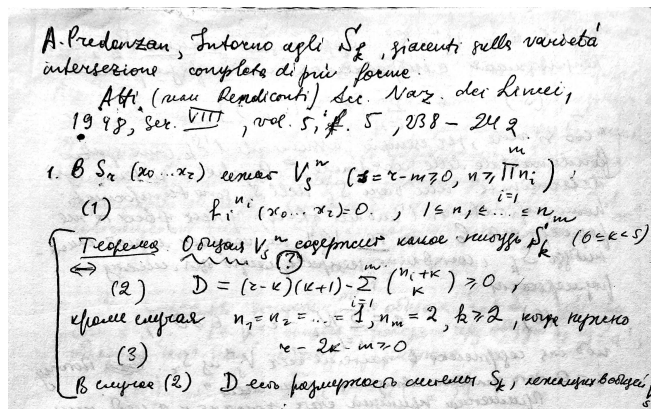 A. Predonzan, Intorno agli S_k, giacenti sulla varietá
intersezione completa di più forme.
Atti (или Rendiconti) Acc. Naz. dei Lincei,
1948, ser. VIII, vol. 5, f. 5, 238 – 242.
1. В S_r (x_0...x_r) лежат V_s^n (s = r-m ≥ 0, n ≥ ∏_{i=1}^{m} n_i) :
(1) f_i^{n_i} (x_0...x_r) = 0. , 1 ≤ n_1 ≤ ... ≤ n_m
Теорема. Общая V_s^n содержит какое нибудь S_k (0 ≤ k < s)
⟷ (?)
(2) D = (r-k)(k+1) - ∑_{i=1}^{m} (n_i+k k) ≥ 0,
кроме случая n_1 = n_2 = ... = 1, n_m = 2, k ≥ 2, когда нужно
(3) r - 2k - m ≥ 0
В случае (2) D есть размерность системы S_k, лежащих в общей V_s